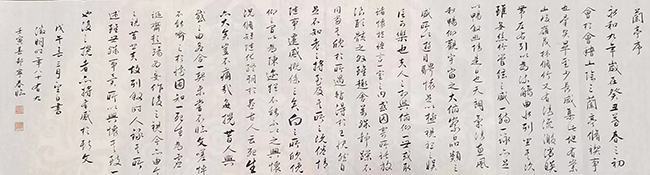 蘭亭序
永和九年歲在癸丑暮春之初
會于會稽山陰之蘭亭脩禊事
也羣賢畢至少長咸集此地有崇
山峻嶺茂林脩竹又有清流激湍映
帶左右引以為流觴曲水列坐其次
雖無絲竹管絃之盛一觴一詠亦足
以暢敘幽情是日也天朗氣清惠風
和暢仰觀宇宙之大俯察品類之
盛所以遊目騁懷足以極視聽之娛
信可樂也夫人之相與俯仰一世或取
諸懷抱悟言一室之內或因寄所託放
浪形骸之外雖趣舍萬殊靜躁不
同當其欣於所遇暫得於己快然自
足不知老之將至及其所之既倦情
隨事遷感慨係之矣向之所欣俛
仰之間已為陳迹猶不能不以之興懷
況脩短隨化終期於盡古人云死生
亦大矣豈不痛哉每攬昔人興
感之由若合一契未嘗不臨文嗟悼
不能喻之於懷固知死生為虛
誕齊彭殤為妄作後之視今亦由今
之視昔悲夫故列敘時人錄其所
述雖世殊事異所以興懷其致一
也後之攬者亦將有感於斯文
戊午年三月望書
徵明時年八十有九
壬寅